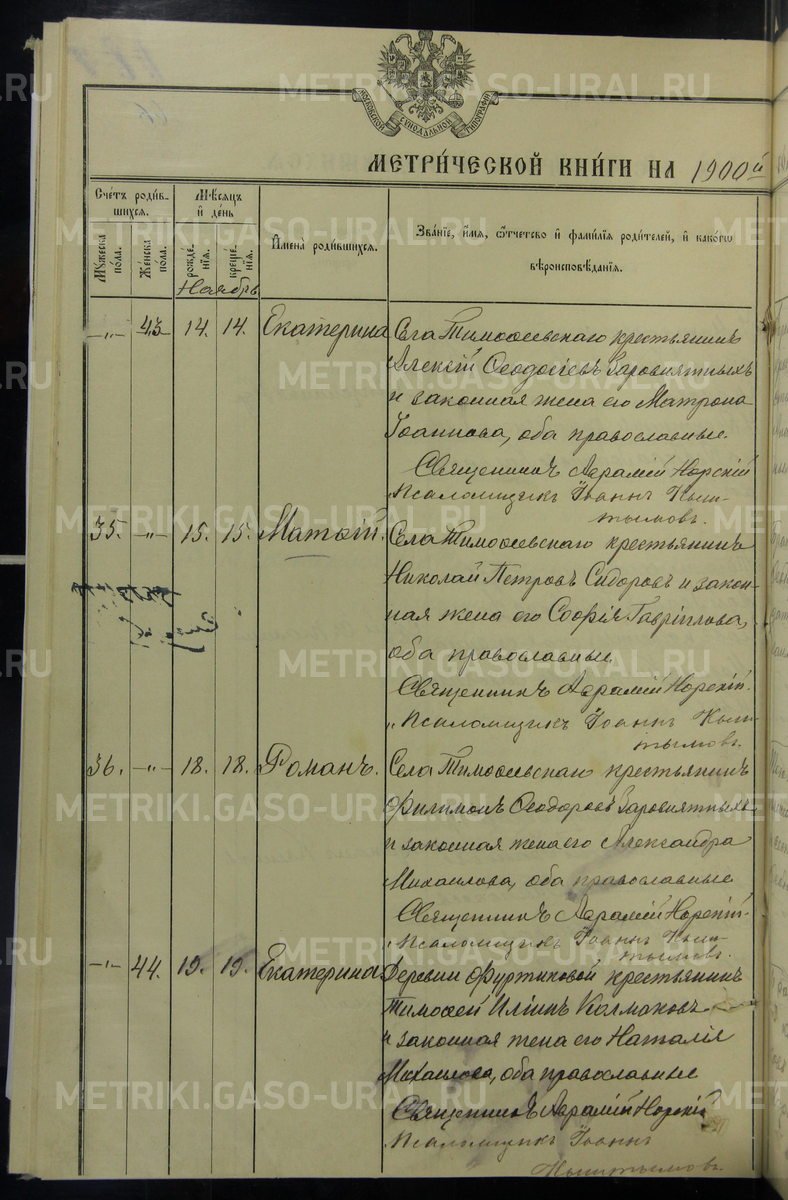 МОСКОВСКОЙ СУНОДАЛЬНОЙ ТИПОГРАФІИ
МЕТРИ́ЧЕСКОЙ КНИ́ГИ НА 1900й
Сче́тъ роди́в-
шихся.
Мꙋжеска
по́ла.
Же́нска
по́ла.
Мѣ́сяцъ
и҆ де́нь
рожде́-
нїѧ.
креще́-
нїѧ.
Ноябрь
И҆мена̀ роди́вшихся.
Зва́нїе, и҆́мѧ, ѻ҆́тчетство и҆ фами́лїѧ роди́телей, и҆ како́гѡ
вѣроисповѣ́данїѧ.
—„— 43 14. 14. Екатерина
Села Тимоѳеевскаго крестьянинъ
Алексій Ѳеодосіевъ Заровнятныхъ
и законная жена его Матрона
Іоаннова, оба православные.
Священникъ Аврамій Норскій
Псаломщикъ Іоаннъ Кыш-
тымовъ.
35. —„— 15. 15. Матѳій.
Села Тимоѳеевскаго крестьянинъ
Николай Петровъ Сидоровъ и закон-
ная жена его Софія Гавріилова,
оба православные
Священникъ Аврамій Норскій.
„ Псаломщикъ Іоаннъ Кыш-
тымовъ.
36. —„— 18. 18. Романъ.
Села Тимоѳеевскаго крестьянинъ
Филимонъ Ѳеодоровъ Заровнятныхъ
и законная жена его Александра
Михаилова, оба православные
Священникъ Аврамій Норскій.
„ Псаломщикъ Іоаннъ Кыш-
тымовъ.
—„— 44. 19. 19. Екатерина
Деревни Фуртиковой крестьянинъ
Тимоѳей Иліинъ Колмаковъ
и законная жена его Наталія
Михаилова, оба православные
Священникъ Аврамій Норскій
Псаломщикъ Іоаннъ
Кыштымовъ
METRIKI.GASO-URAL.RU